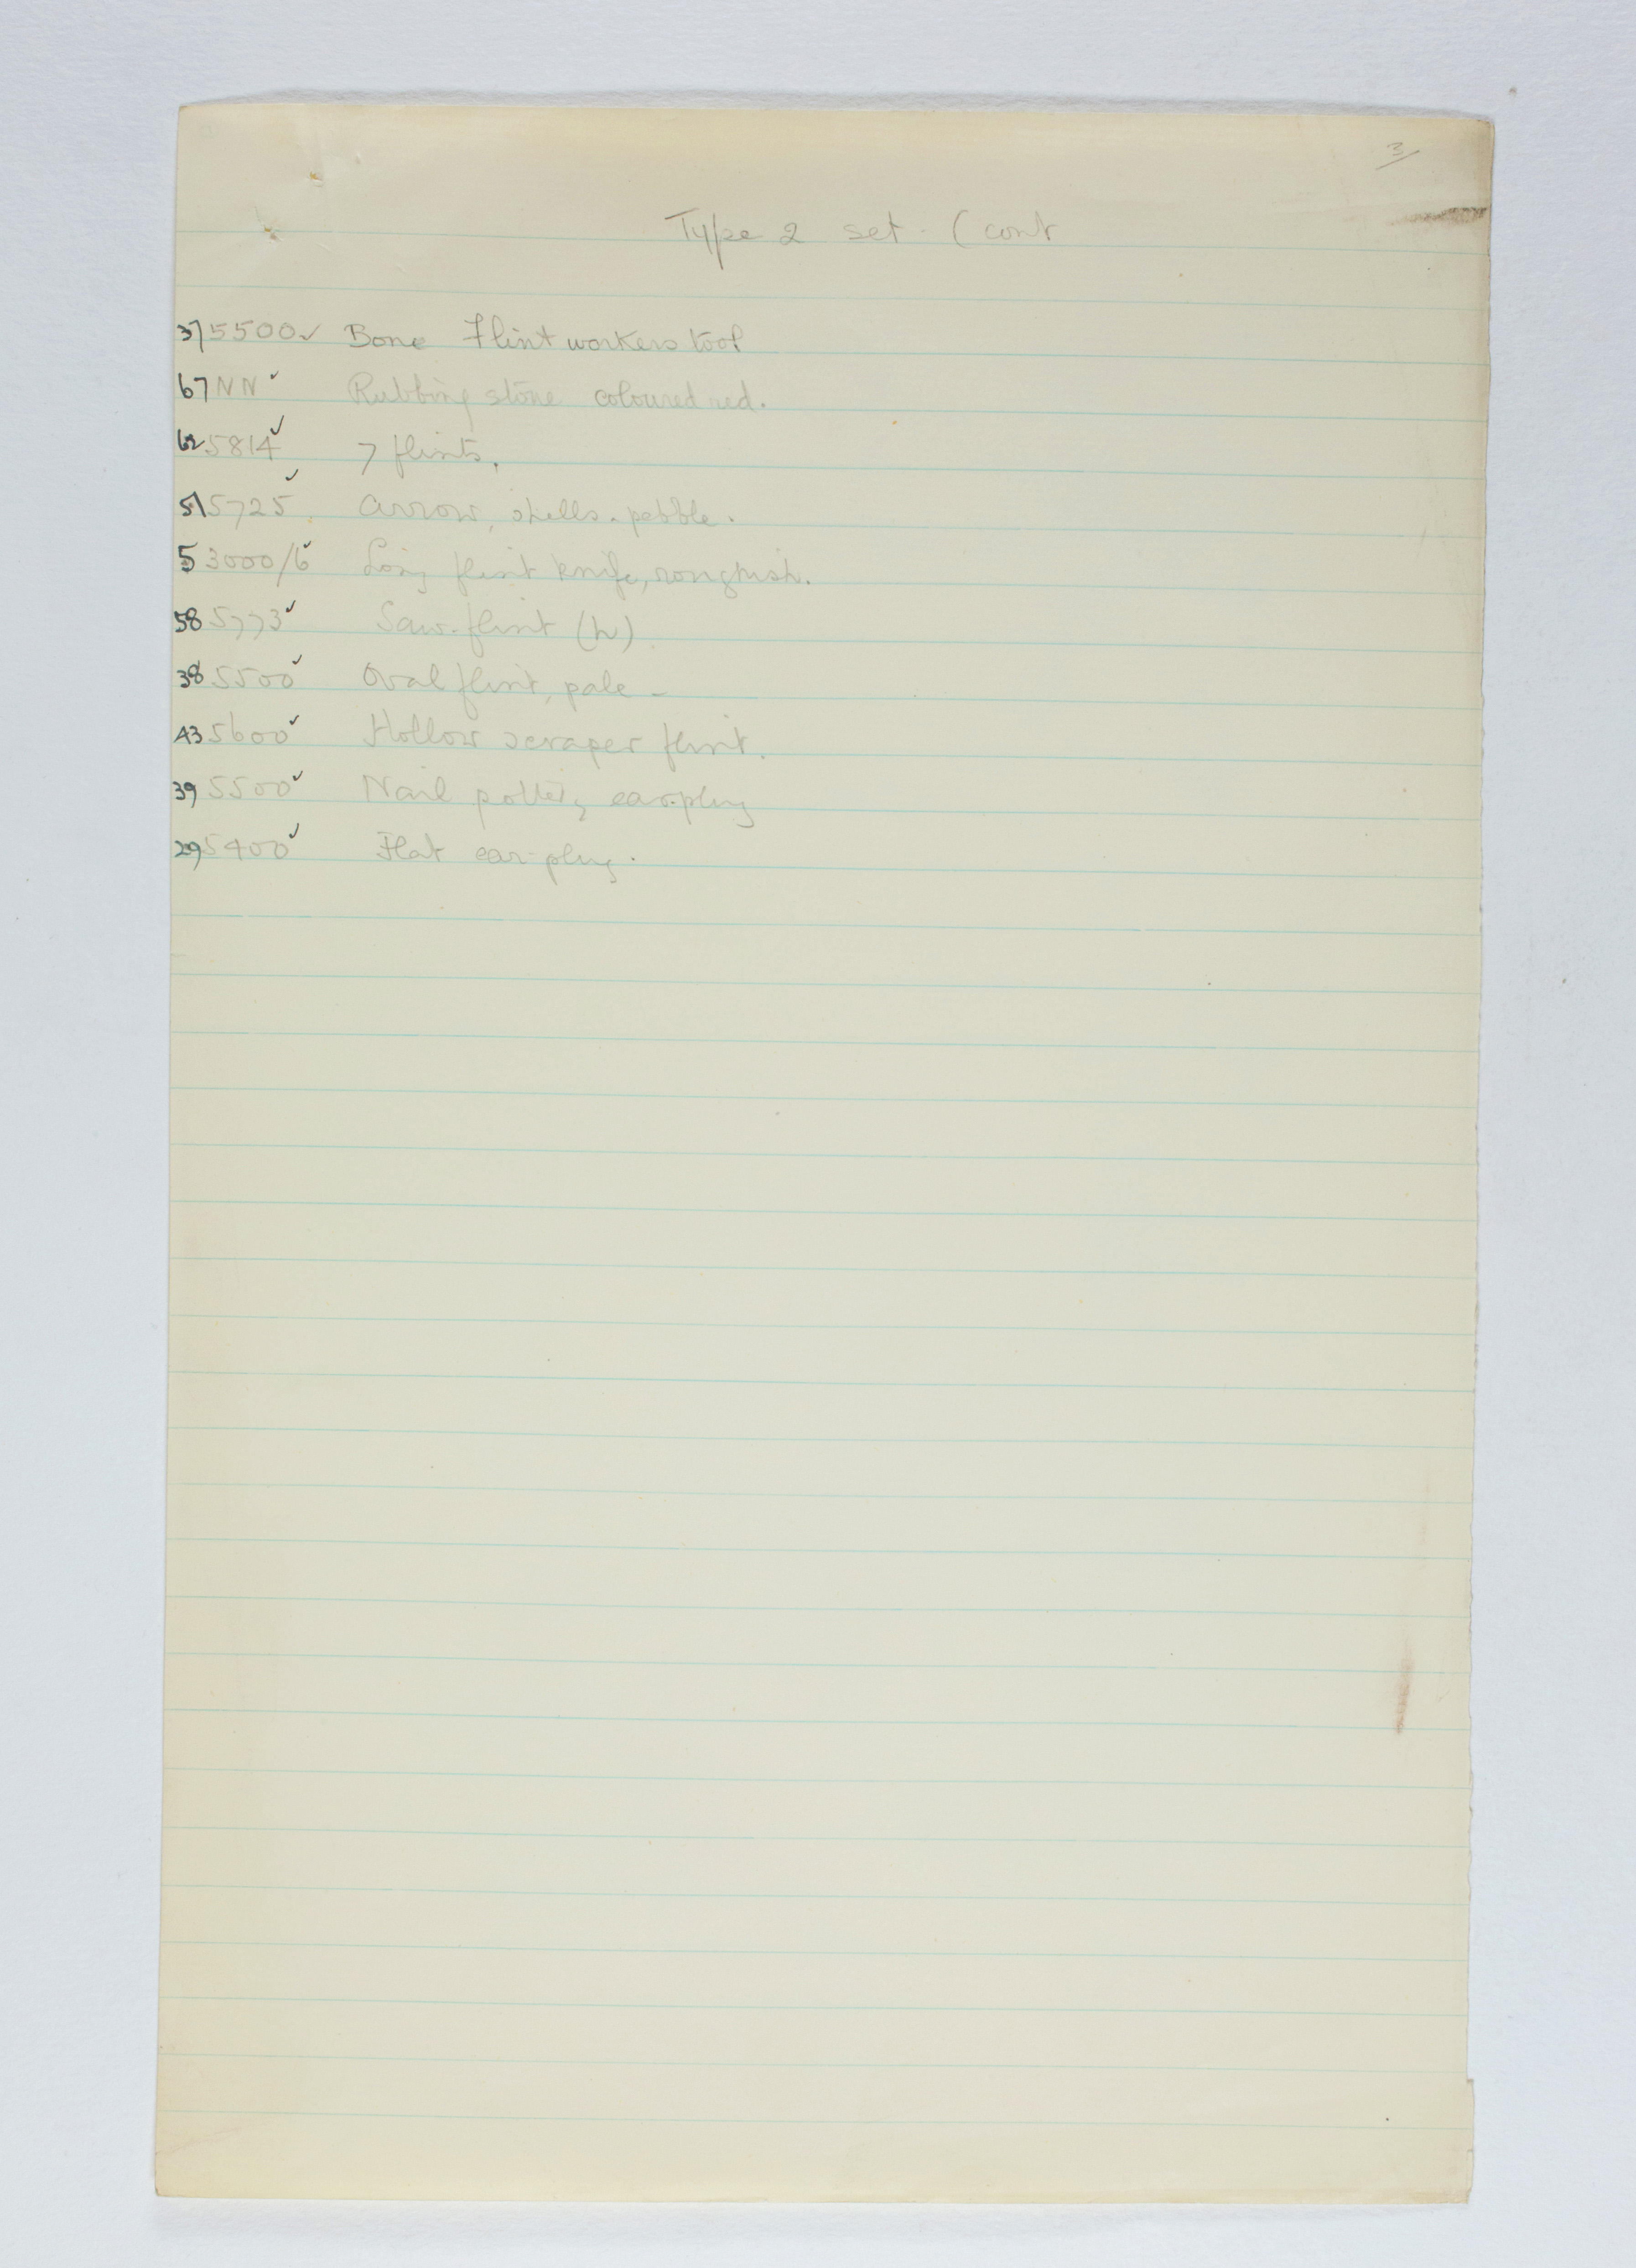 3/
Type 2 set. (cont
37 5500 ✓ Bone Flint workers tool
67 NN ✓ Rubbing stone coloured red.
62 5814 ✓ 7 flints.
51 5725 ✓ Arrow, shells, pebble.
5 3000/6 ✓ Long flint knife, roughish.
58 5773 ✓ Saw-flint (h)
38 5500 ✓ Oval flint, pale -
43 5600 ✓ Hollow scraper flint.
39 5500 ✓ Nail pottery ear-plug
29 5400 ✓ Flat ear-plug.